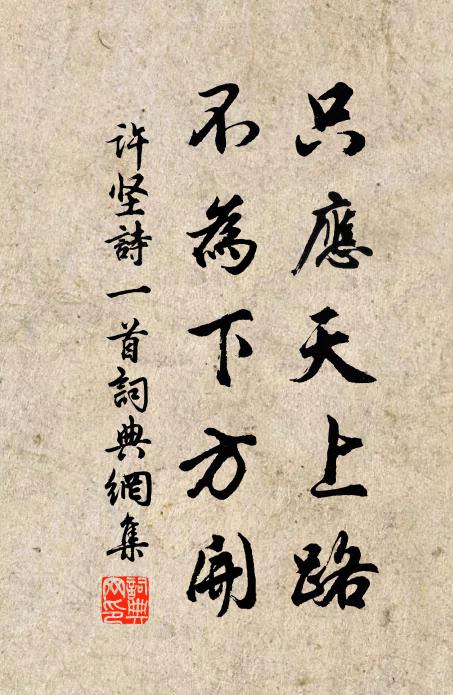 只應天上路
不為下方開
许坚詩一首詞典網集